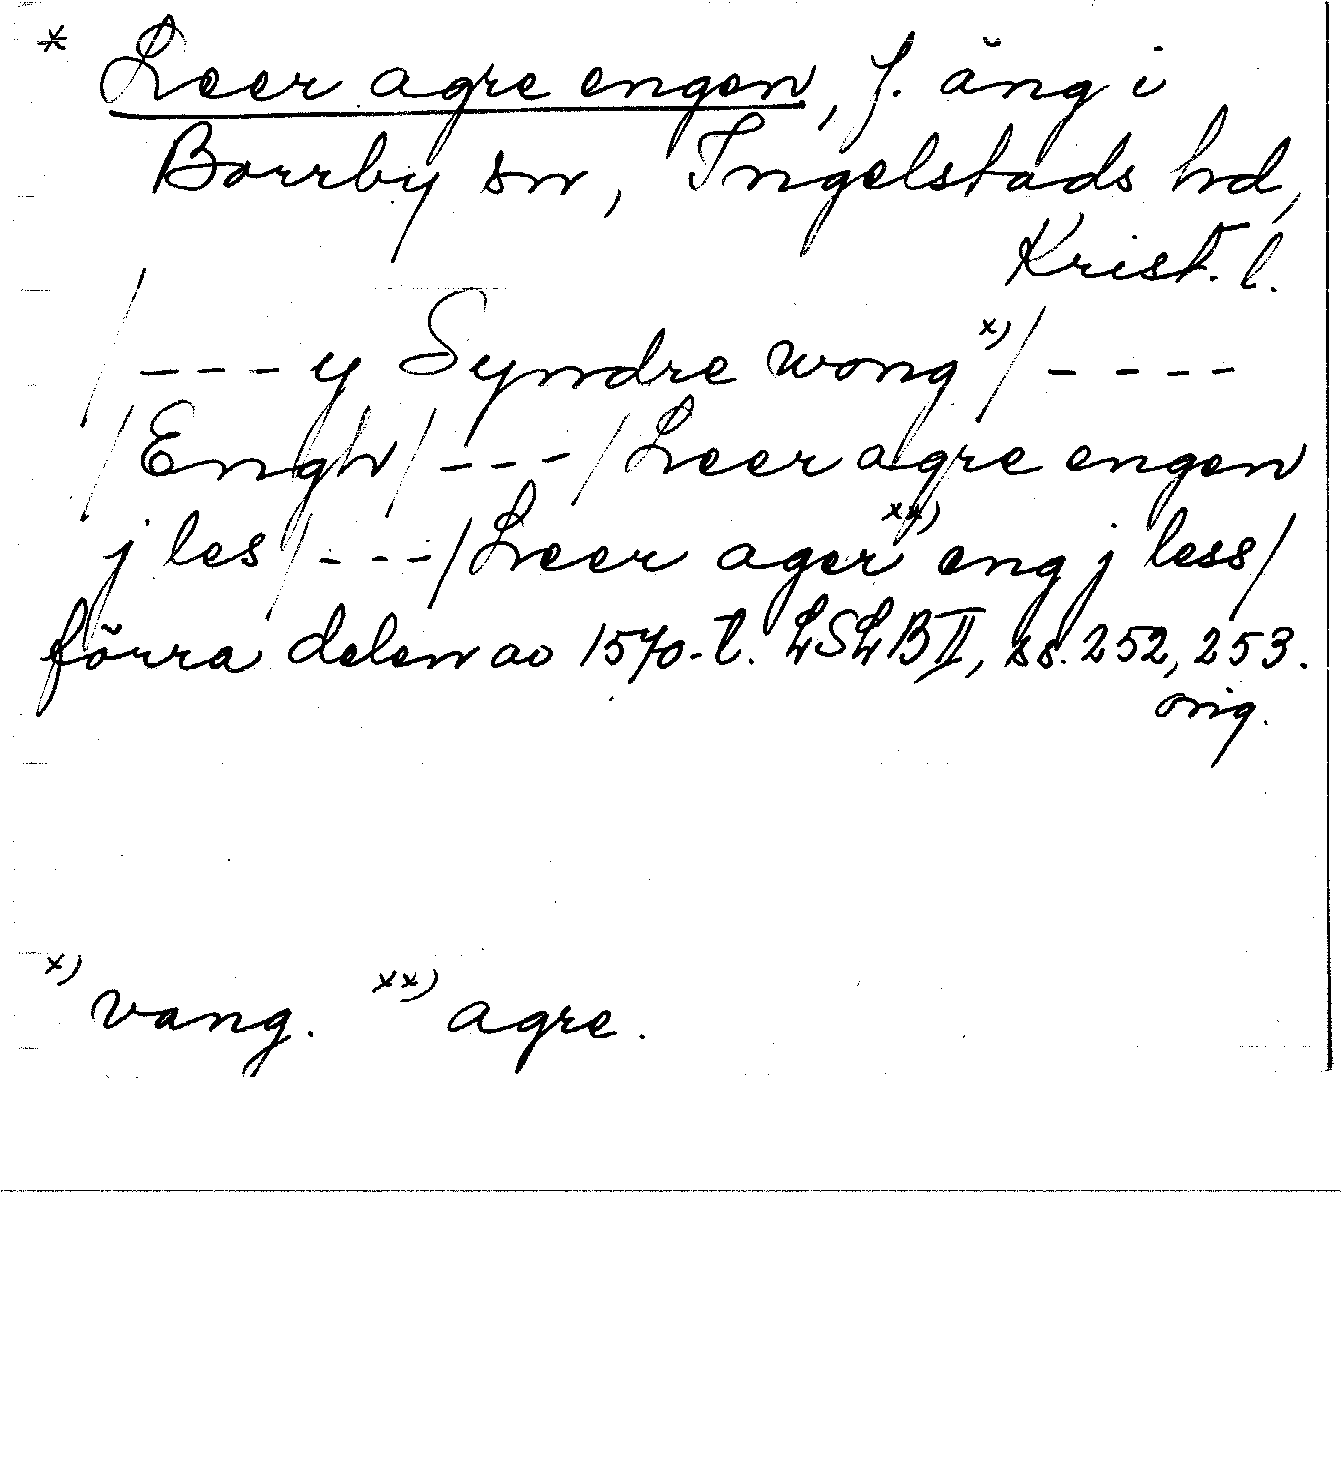 * Leer agre engen, f. äng i
Borrby sn, Ingelstads hd,
Krist. l.
/---y Syndre wong x)/----
/Engh/---/Leer agre engen
j les/---/Leer ager xx) eng j less/
förra delen av 1570-t. LSLB II, ss. 252, 253.
orig.
x) vang. xx) agre.